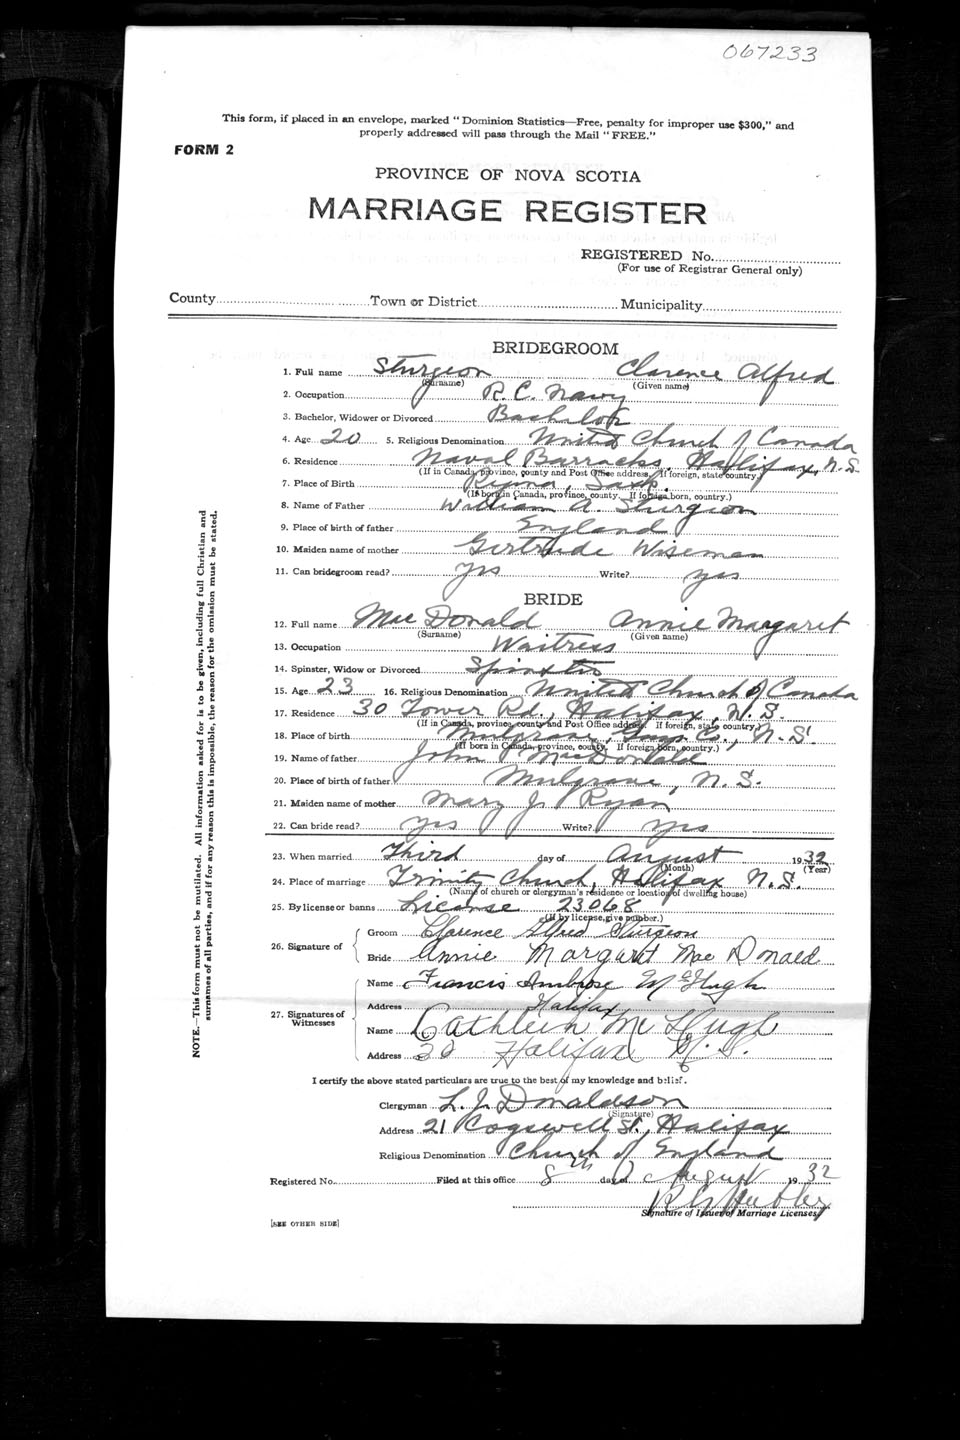 067233
This form, if placed in an envelope, marked "Dominion Statistics—Free, penalty for improper use $300," and
properly addressed will pass through the Mail "FREE."
FORM 2
PROVINCE OF NOVA SCOTIA
MARRIAGE REGISTER
REGISTERED No.
(For use of Registrar General only)
County Town or District Municipality
BRIDEGROOM
1. Full name Sturgeon Clarence Alfred
(Surname) (Given name)
2. Occupation R. C. Navy
3. Bachelor, Widower or Divorced Bachelor
4. Age 20 5. Religious Denomination United Church of Canada
6. Residence Naval Barracks, Halifax, N.S.
(If in Canada, province, county and Post Office address. If foreign, state country.)
7. Place of Birth Regina, Sask.
(If born in Canada, province, county. If foreign born, country.)
8. Name of Father William A. Sturgeon
9. Place of birth of father England
10. Maiden name of mother Gertrude Wiseman
11. Can bridegroom read? yes Write? yes
BRIDE
12. Full name MacDonald Annie Margaret
(Surname) (Given name)
13. Occupation Waitress
14. Spinster, Widow or Divorced Spinster
15. Age 23 16. Religious Denomination United Church of Canada
17. Residence 30 Tower Rd., Halifax, N.S.
(If in Canada, province, county and Post Office address. If foreign, state country)
18. Place of birth Mulgrave, Guys. Co., N.S.
(If born in Canada, province, county. If foreign born, country.)
19. Name of father John MacDonald
20. Place of birth of father Mulgrave, N.S.
21. Maiden name of mother Mary J. Ryan
22. Can bride read? yes Write? yes
23. When married Third day of August 1932
(Month) (Year)
24. Place of marriage Trinity Church, Halifax N.S.
(Name of church or clergyman's residence or location of dwelling house)
25. By license or banns License 23068
(If by license, give number.)
Groom Clarence Alfred Sturgeon
26. Signature of
Bride Annie Margaret MacDonald
Name Francis Ambrose McHugh
Address Halifax
27. Signatures of Witnesses
Name Cathleen McHugh
Address 20 Halifax N.S.
I certify the above stated particulars are true to the best of my knowledge and belief.
Clergyman L. J. Donaldson
(Signature)
Address 21 Cogswell St., Halifax
Religious Denomination Church of England
Registered No. Filed at this office 8th day of August 1932
Signature of Issuer of Marriage Licenses
[SEE OTHER SIDE]
NOTE.—This form must not be mutilated. All information asked for is to be given, including full Christian and
surnames of all parties, and if for any reason this is impossible, the reason for the omission must be stated.